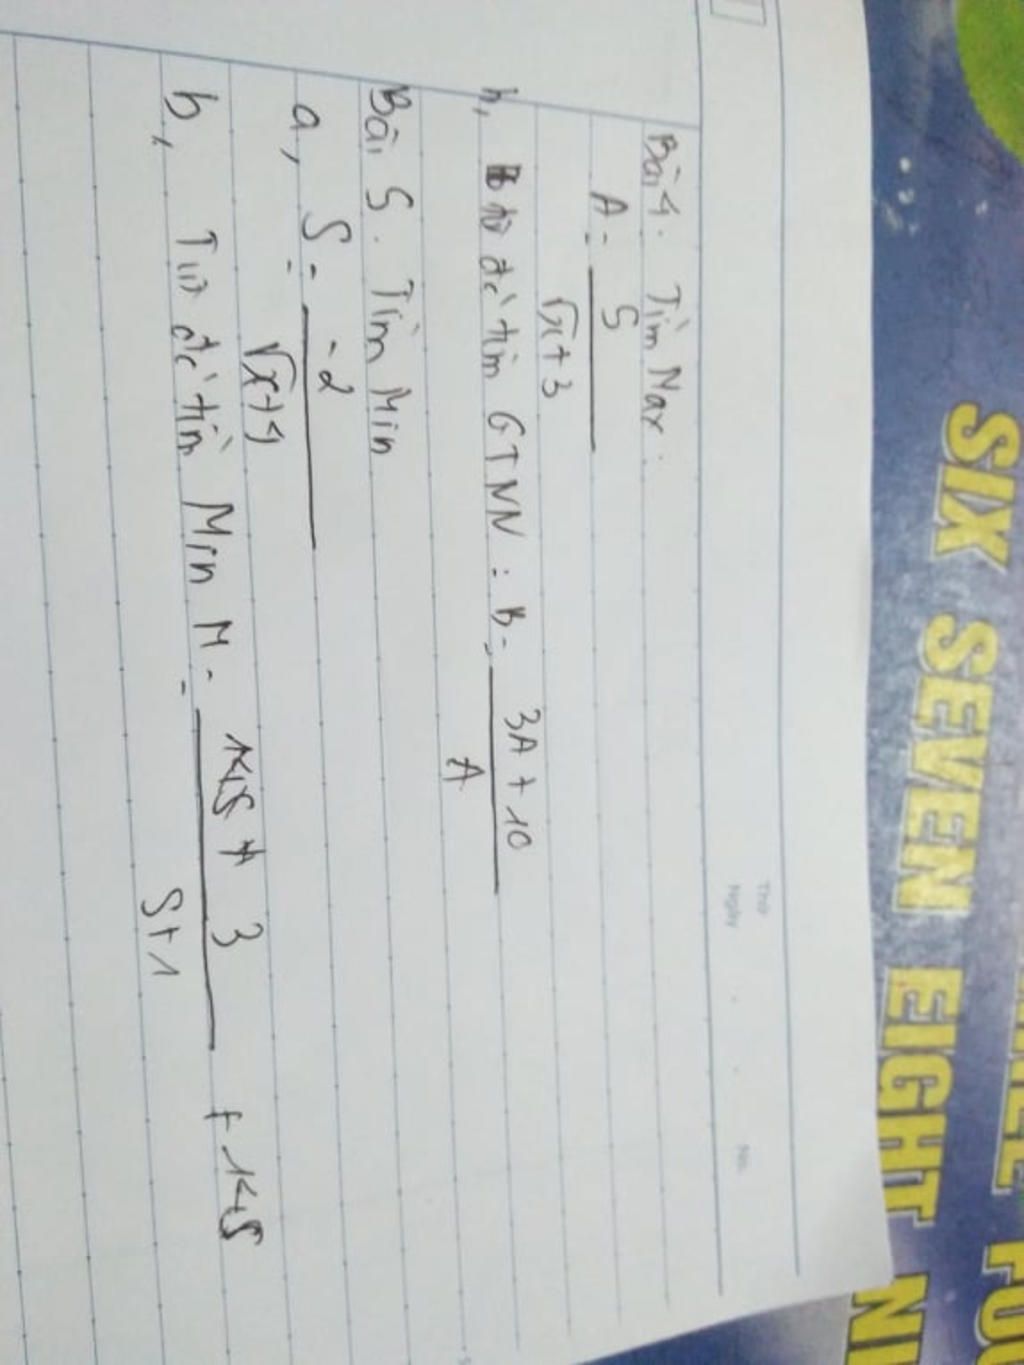 Thứ
Ngày
No.
Bài 4. Tìm Max.
A = 5
√x + 3
b, từ đó tìm GTNN : B = 3A + 10
A
Bài 5. Tìm Min
a, S = -2
√x + 4
b, Từ đó tìm Min M = 3 +
S+1
SIX SEVEN EIGHT NI